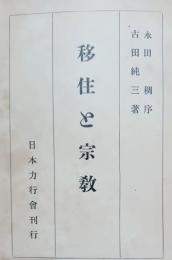 永田稠序
古田純三著
移住と宗教
日本力行會刊行